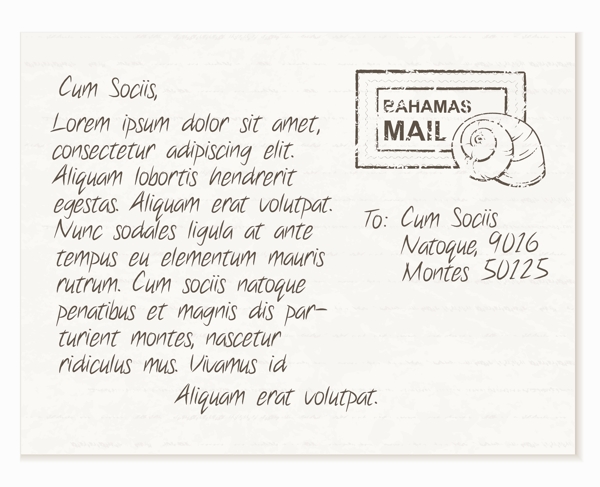 Cum Sociis,
Lorem ipsum dolor sit amet,
consectetur adipiscing elit.
Aliquam lobortis hendrerit
egestas. Aliquam erat volutpat.
Nunc sodales ligula at ante
tempus eu elementum mauris
rutrum. Cum sociis natoque
penatibus et magnis dis par-
turient montes, nascetur
ridiculus mus. Vivamus id
Aliquam erat volutpat.
BAHAMAS
MAIL
To: Cum Sociis
Natoque, 9016
Montes 50125